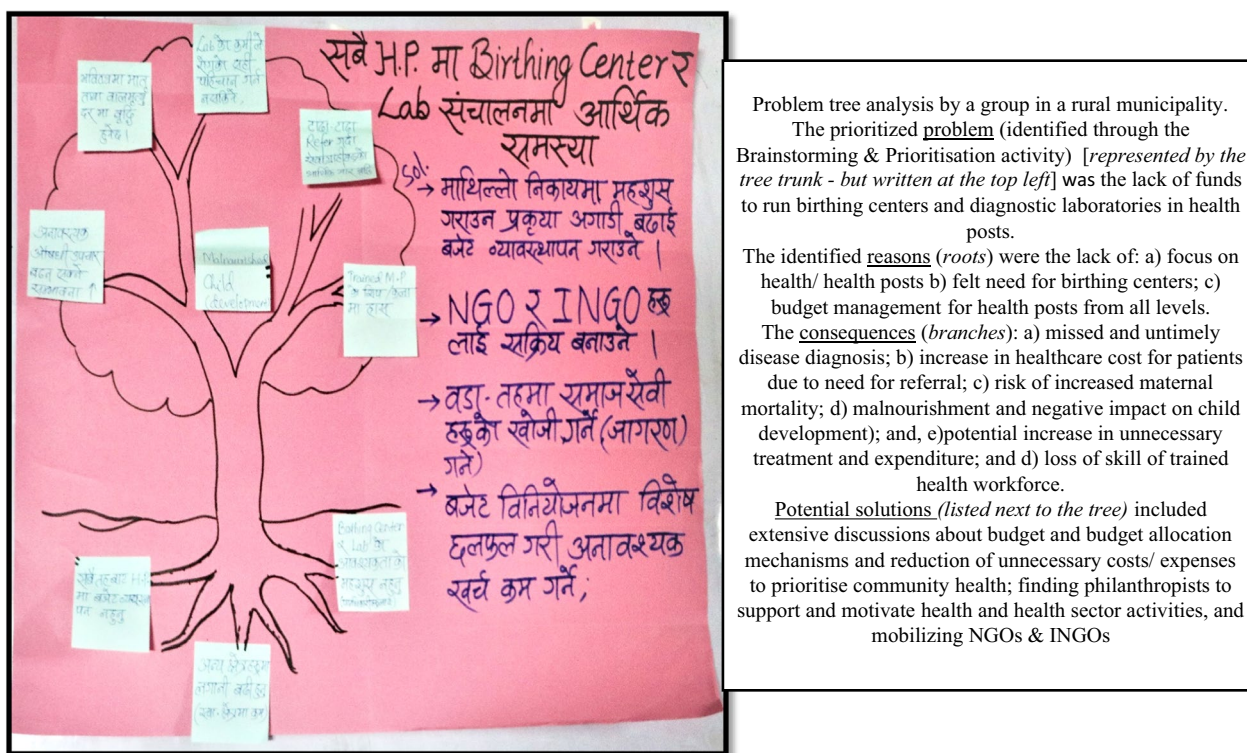 सबै H.P. मा Birthing Center र
Lab संचालनमा आर्थिक
समस्या
sol.
→ माथिल्लो निकायमा महशुस
गराउन प्रकृया अगाडी बढाई
बजेट व्यावस्थापन गराउने ।
→ NGO र INGO हरु
लाई सक्रिय बनाउने ।
→ वडा-तहमा समाज सेवी
हरुको खोजी गर्ने (जागरण)
गर्ने)
→ बजेट विनियोजनमा विशेष
छलफल गरी अनावश्यक
खर्च कम गर्ने,
Lab को कमीले
रोगको सही
पहिचान गर्न
नसकिने,
भविष्यमा मातृ
तथा बालमृत्यु
दर मा वृद्धि
हुनेछ ।
टाढा टाढा
Refer गर्दा
अनावश्यक
औषधी उपचार
बढ्न सक्ने
सम्भावना ↑
Malnourished
Child
(development)
Trained M.P.
मा ह्रास
Birthing Center
र Lab को
आवश्यकता को
महशुस नहुनु
सबै तहबाट H.P.
मा बजेट व्यवस्था
पन नहुनु
अन्य क्षेत्रहरुमा
लगानी बढी हुनु
Problem tree analysis by a group in a rural municipality.
The prioritized problem (identified through the
Brainstorming & Prioritisation activity) [represented by the
tree trunk - but written at the top left] was the lack of funds
to run birthing centers and diagnostic laboratories in health
posts.
The identified reasons (roots) were the lack of: a) focus on
health/ health posts b) felt need for birthing centers; c)
budget management for health posts from all levels.
The consequences (branches): a) missed and untimely
disease diagnosis; b) increase in healthcare cost for patients
due to need for referral; c) risk of increased maternal
mortality; d) malnourishment and negative impact on child
development); and, e)potential increase in unnecessary
treatment and expenditure; and d) loss of skill of trained
health workforce.
Potential solutions (listed next to the tree) included
extensive discussions about budget and budget allocation
mechanisms and reduction of unnecessary costs/ expenses
to prioritise community health; finding philanthropists to
support and motivate health and health sector activities, and
mobilizing NGOs & INGOs